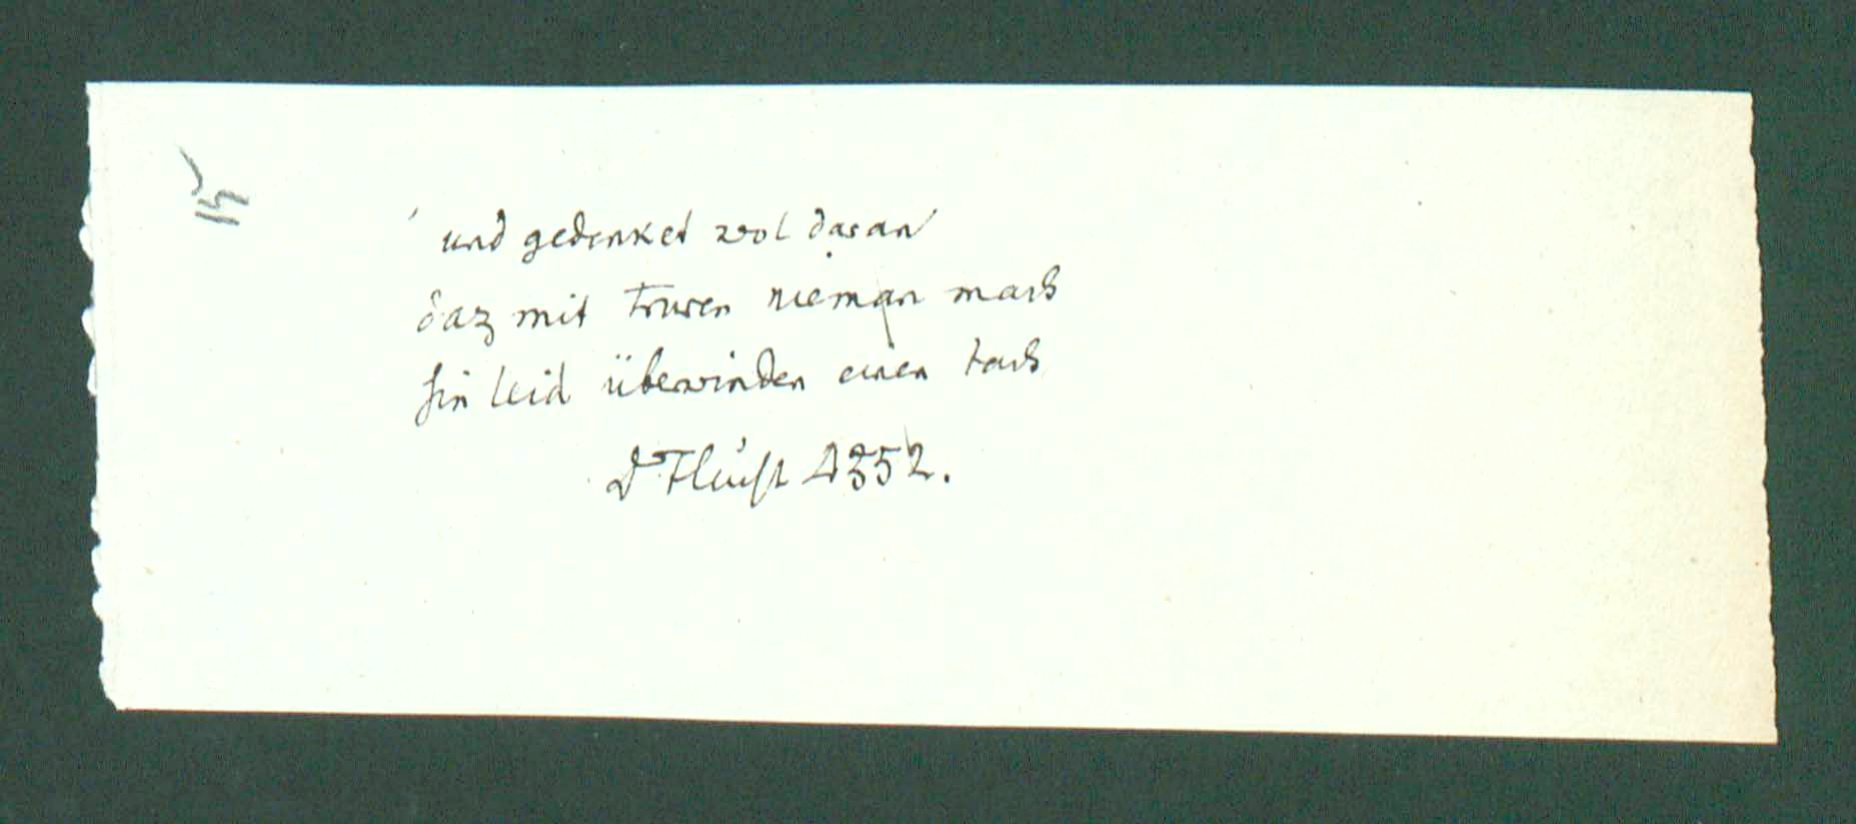 und gedenket wol daran
daz mit truren nieman mach
sin leid überwinden einen tach
4352.